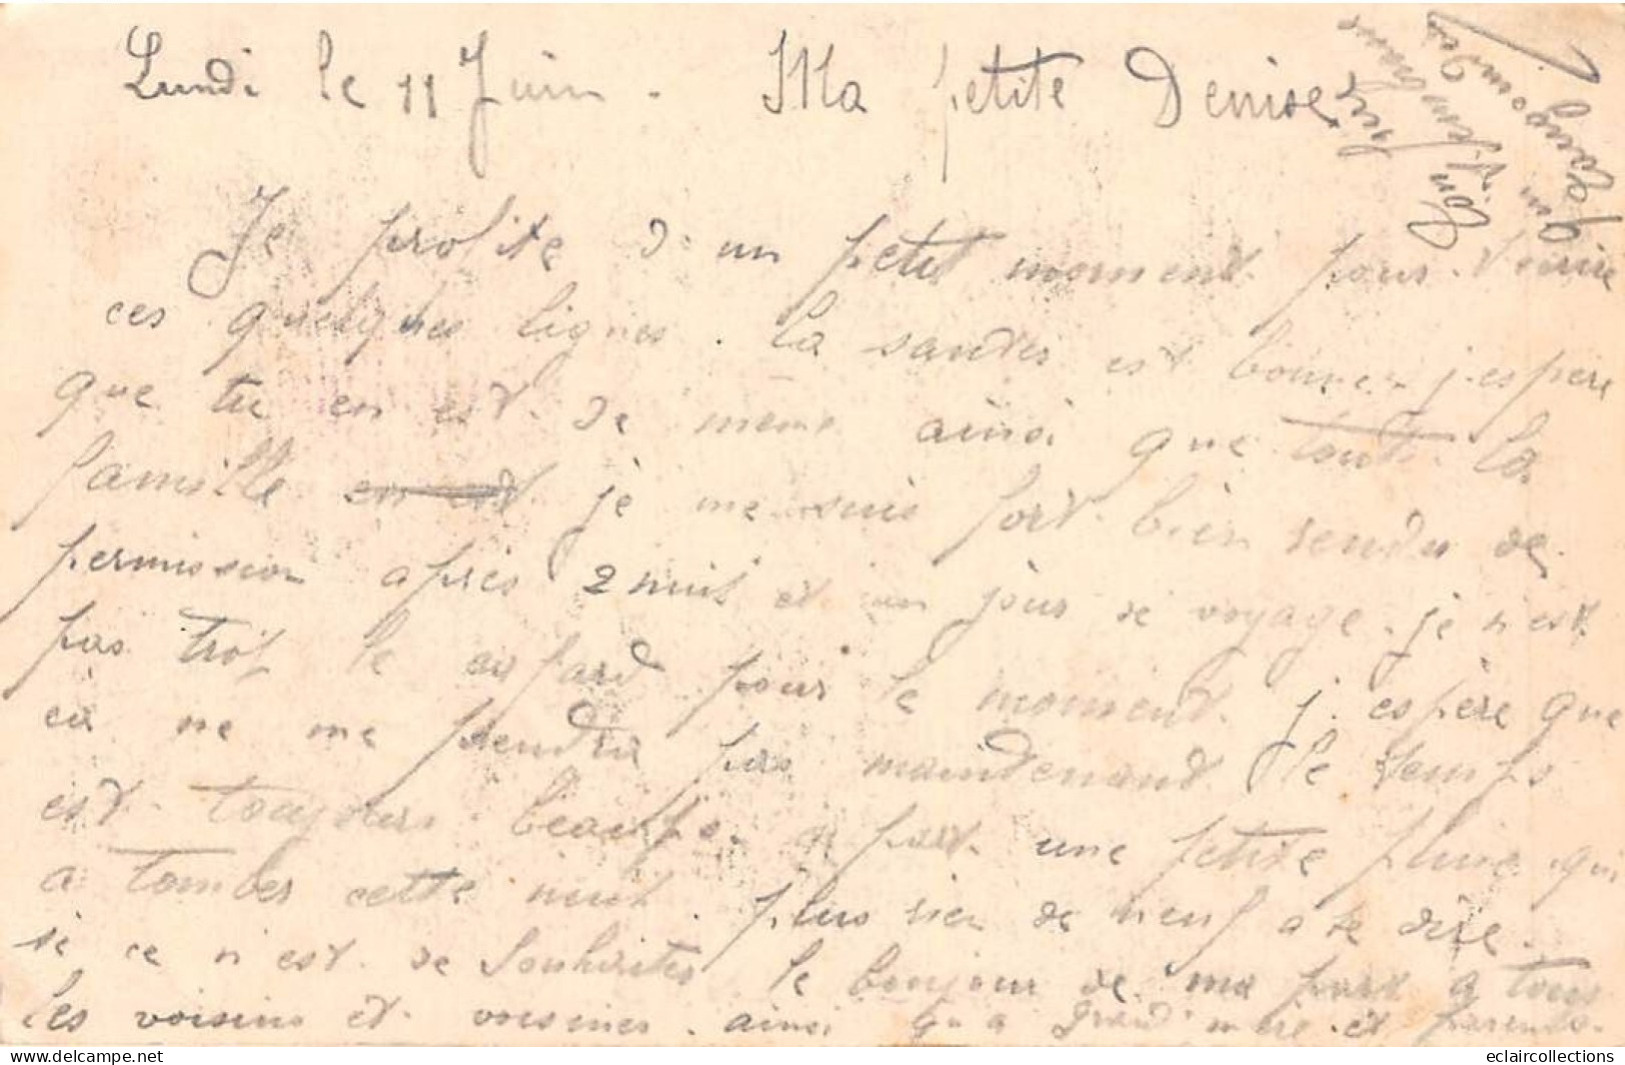 Lundi le 11 Juin. Ma petite Denise
Je profite d'un petit moment pour t'écrire
ces quelques lignes. La santes est bonne j'espere
que tu en est de meme ainsi que toute la
famille je me suis fort bien rendu de
permission apres 2 nuit et un jour de voyage. je n'est
pas trop le cafard pour le moment. j'espère que
ça ne me prendra pas maintenant le temps
est toujours beau a part une petite pluie qui
a tomber cette nuit. plus rien de neuf a te dire
si ce n'est de souhaites le bonjour de ma part a tous
les voisins et voisines. ainsi qu'a grand'mère et parents.
Ton
qui